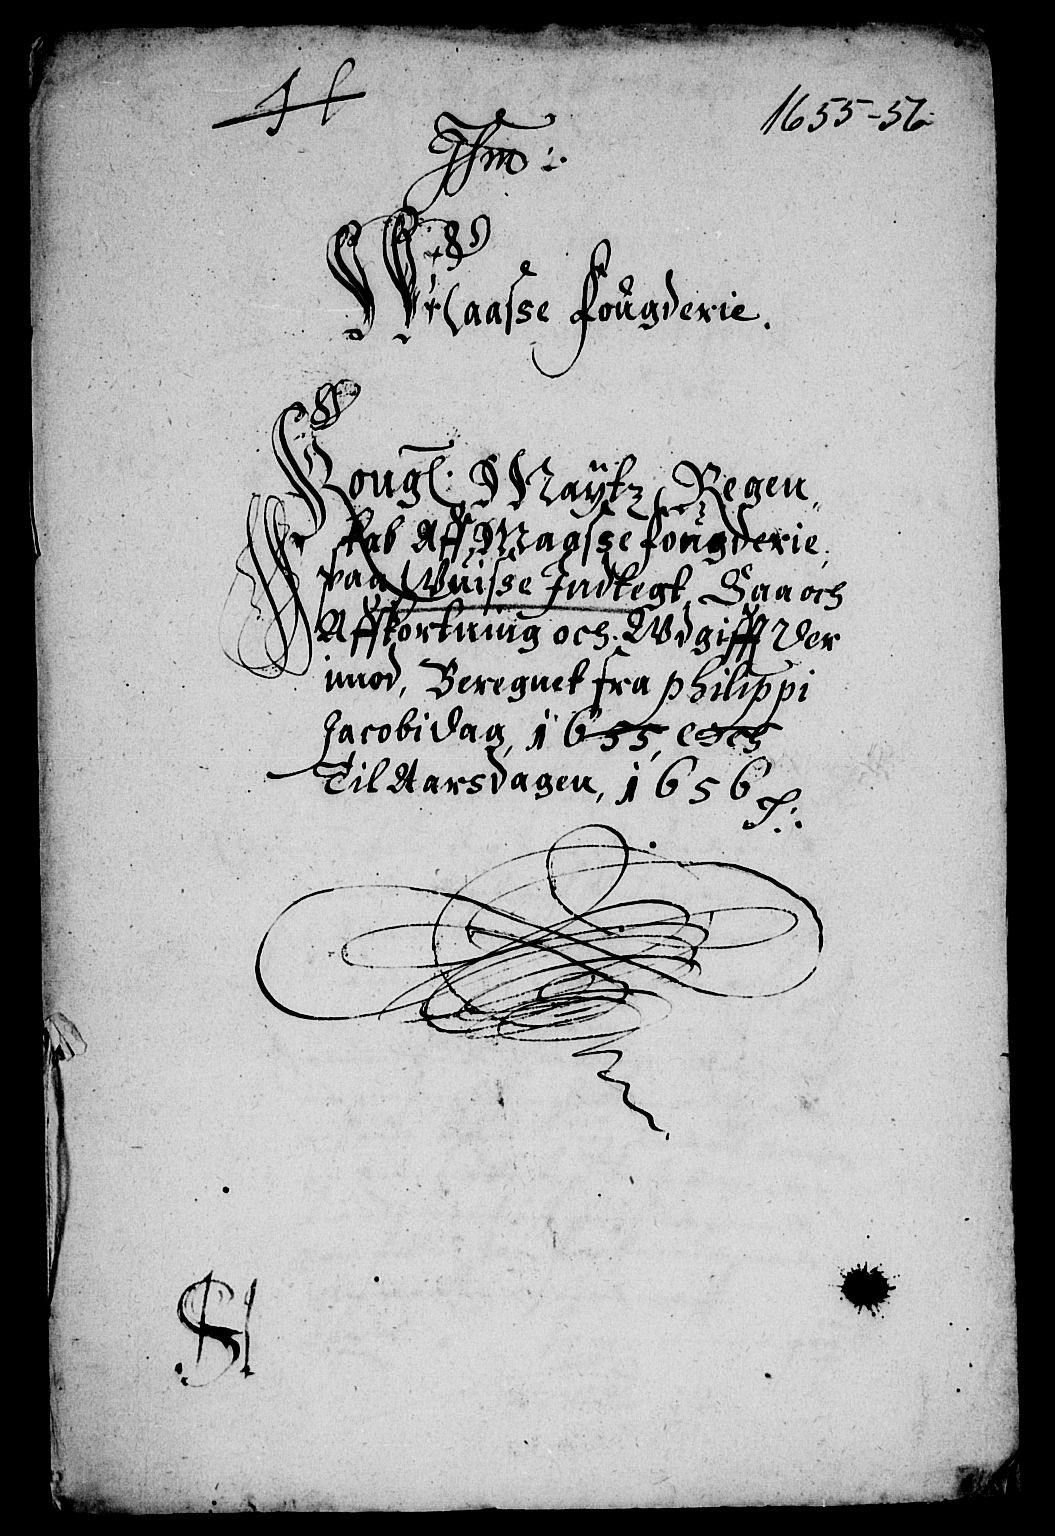 1655-56
Ihm:
Maasse fougderie.
Kongl: Maÿtz Regen
skab Aff Maasse fougderie,
paa Wuisse Indtegt, Saa och
Affkortning och Wdgifft der
imod, Beregnet fra philippi
Jacobi dag, 1655, och
Til Aarsdagen, 1656